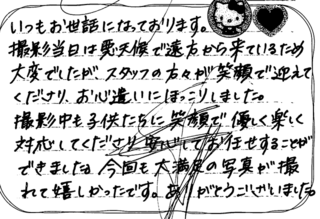 いつもお世話になっております。
撮影当日は悪天候で遠方から来ているため
大変でしたが、スタッフの方々が笑顔で迎えて
くださり、お心遣いにほっこりしました。
撮影中も子供たちに笑顔で優しく楽しく
対応してくださり安心してお任せすることが
できました。今回も大満足の写真が撮
れて嬉しかったです。ありがとうございました。